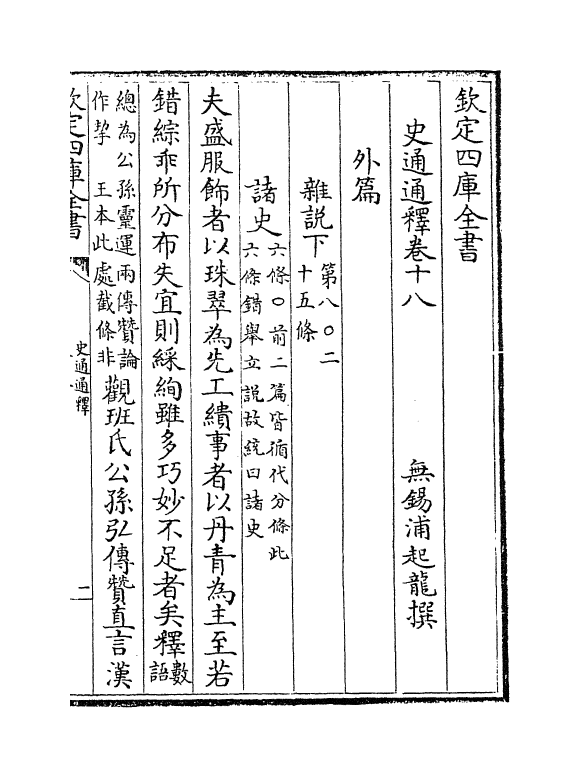 欽定四庫全書
史通通釋卷十八　無錫浦起龍撰
外篇
雜説下 第八〇二
十五條
諸史 六條〇前二篇皆循代分條此
六條錯舉立說故統曰諸史
夫盛服飾者以珠翠為先工繢事者以丹青為主至若
錯綜乖所分布失宜則綵絢雖多巧妙不足者矣釋 數
語
總為公孫靈運兩傳贊論
作挈　王本此處截條非
觀班氏公孫弘傳贊直言漢
定四庫全書
史通通釋